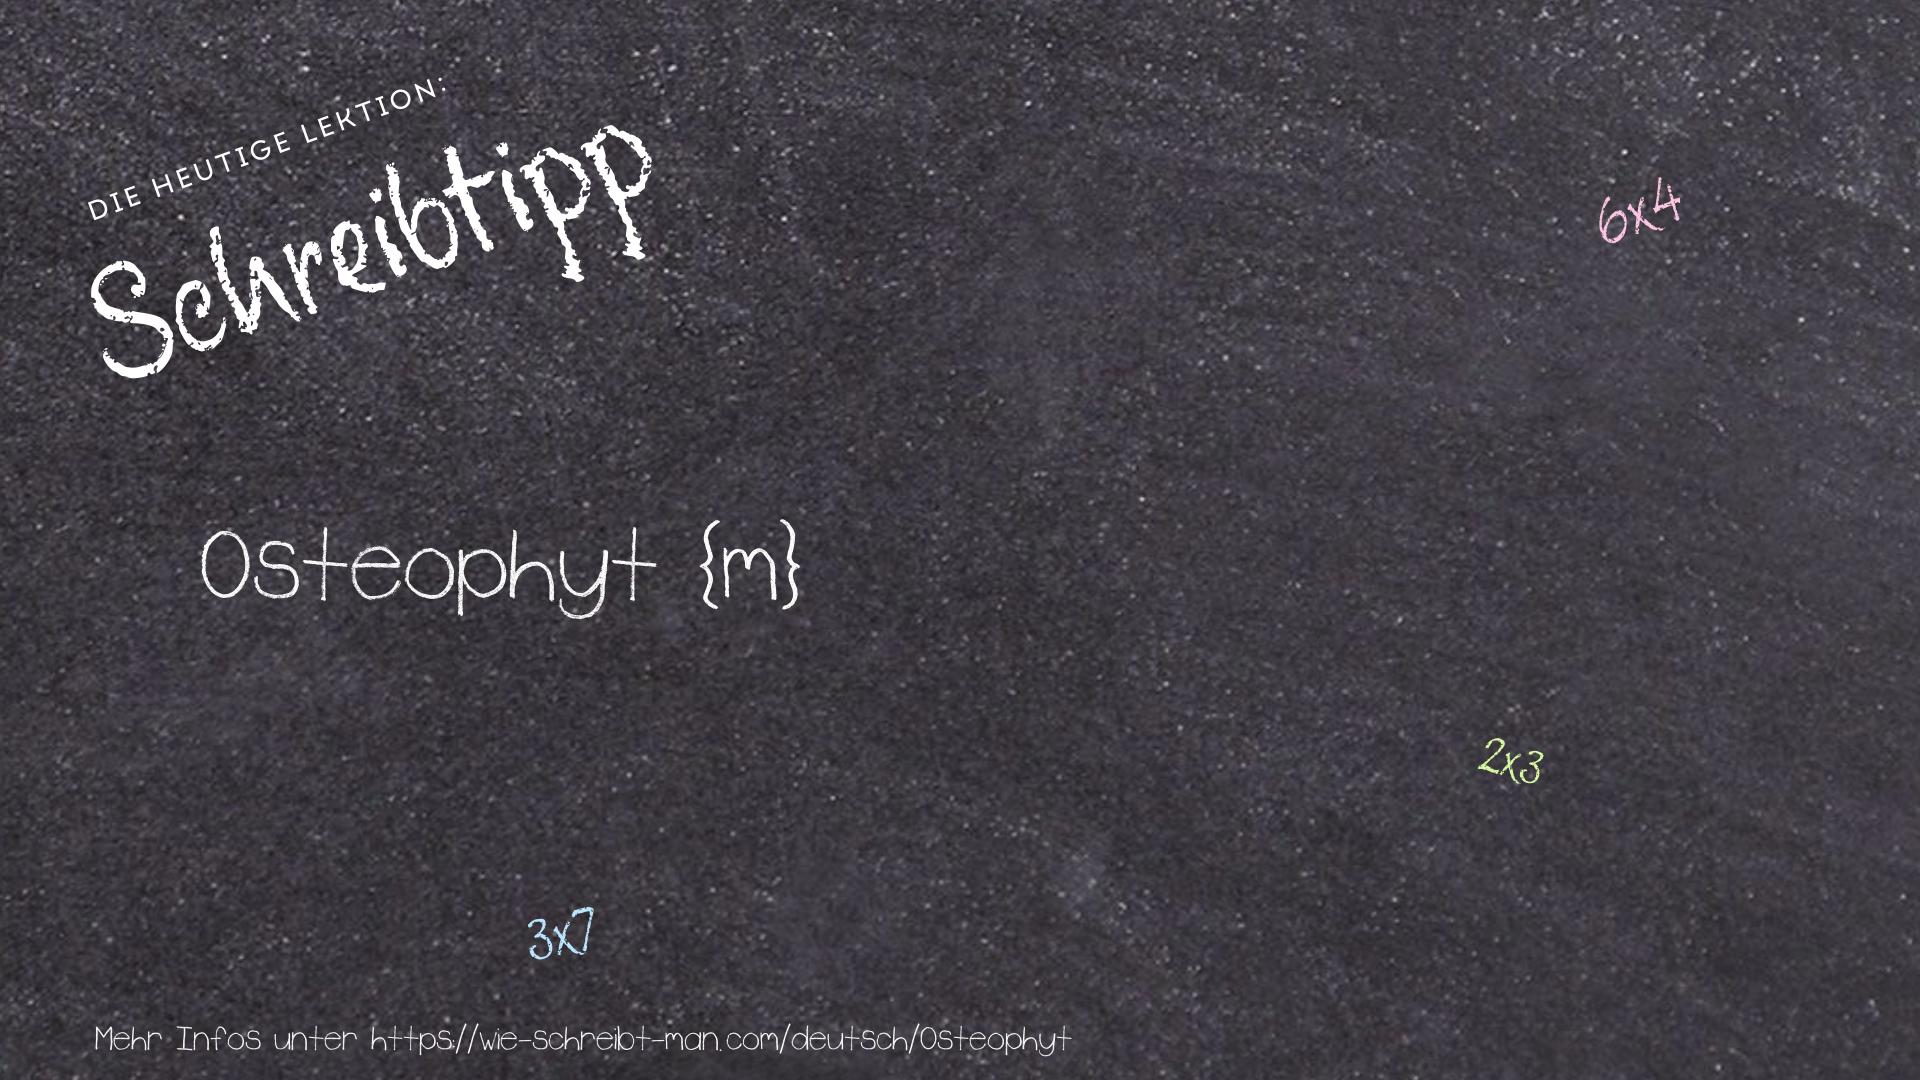 DIE HEUTIGE LEKTION:
Schreibtipp
6x4
Osteophyt {m}
2x3
3x7
Mehr Infos unter https://wie-schreibt-man.com/deutsch/Osteophyt